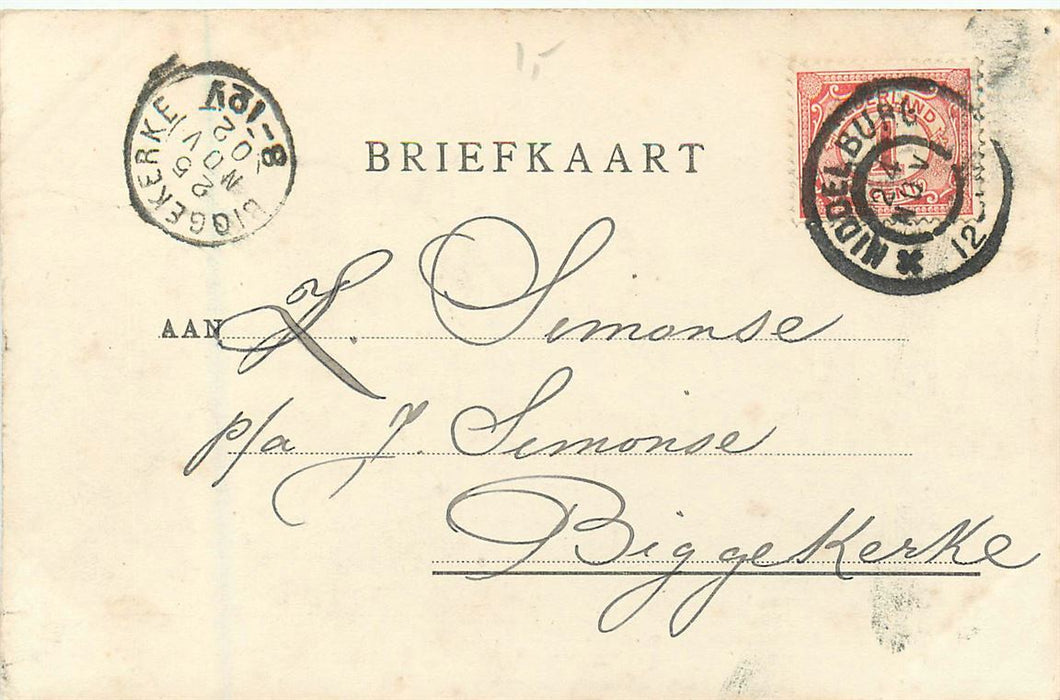 1,-
BRIEFKAART
NEDERLAND
MIDDELBURG
24 NOV
12
BIGGEKERKE
25 NOV 02
8-12V
AAN
Simonse
p/a J. Simonse
Biggekerke